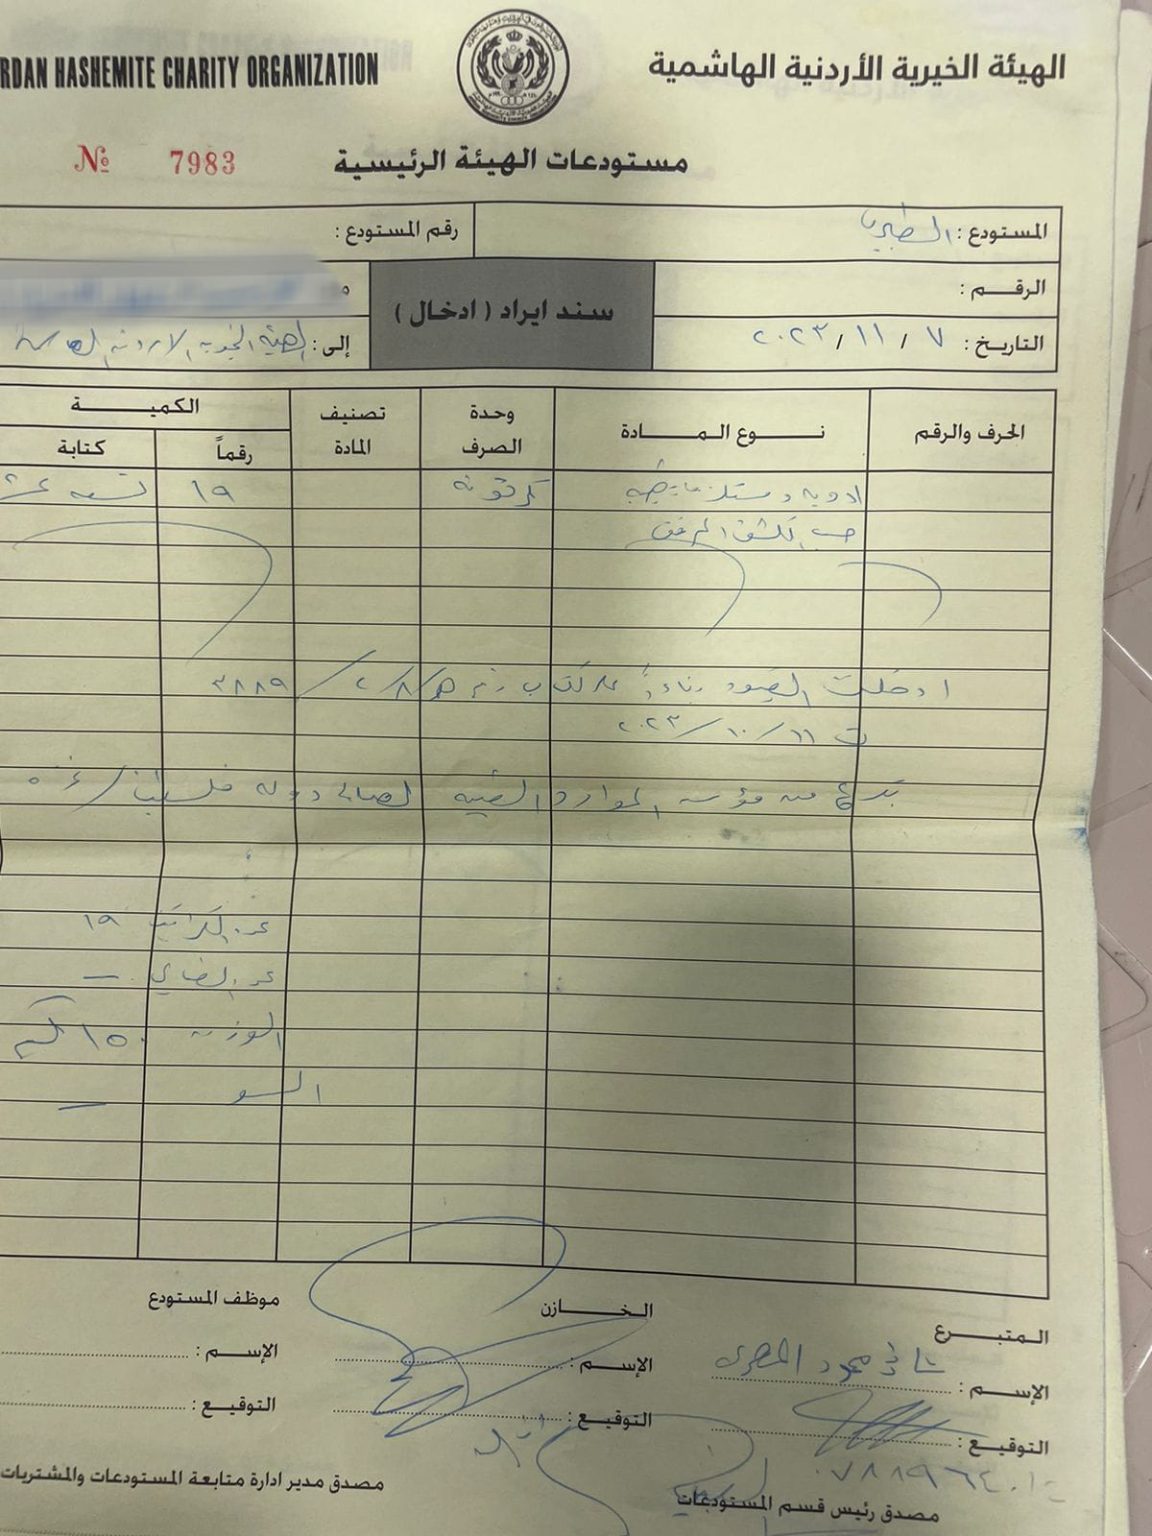 RDAN HASHEMITE CHARITY ORGANIZATION
الهيئة الخيرية الأردنية الهاشمية
№ 7983
مستودعات الهيئة الرئيسية
المستودع :
رقم المستودع :
الرقم :
سند ايراد ( ادخال )
التاريخ : ٧ / ١١ / ٢٠٢٣
إلى : الهيئة الخيرية الاردنية الهاشمية
الحرف والرقم
نوع المادة
وحدة الصرف
تصنيف المادة
الكمية
رقماً
كتابة
ادوية و مستلزمات طبية
كرتونة
١٩
تسعة عشر
حسب الكشف المرفق
ادخلت القيود بناءً على كتاب رقم هـ/٨/٢/٣٨٨٩
ت ١١/١٠/٢٠٢٣
تبرع من مؤسسة الموارد لصالح دولة فلسطين/غزة
عدد الكراتين ١٩
الوزن ١٥٠ كغم
المتبرع
الخازن
موظف المستودع
الإسم :
محمود المصري
الإسم :
الإسم :
التوقيع :
التوقيع :
التوقيع :
مصدق رئيس قسم المستودعات
مصدق مدير ادارة متابعة المستودعات والمشتريات